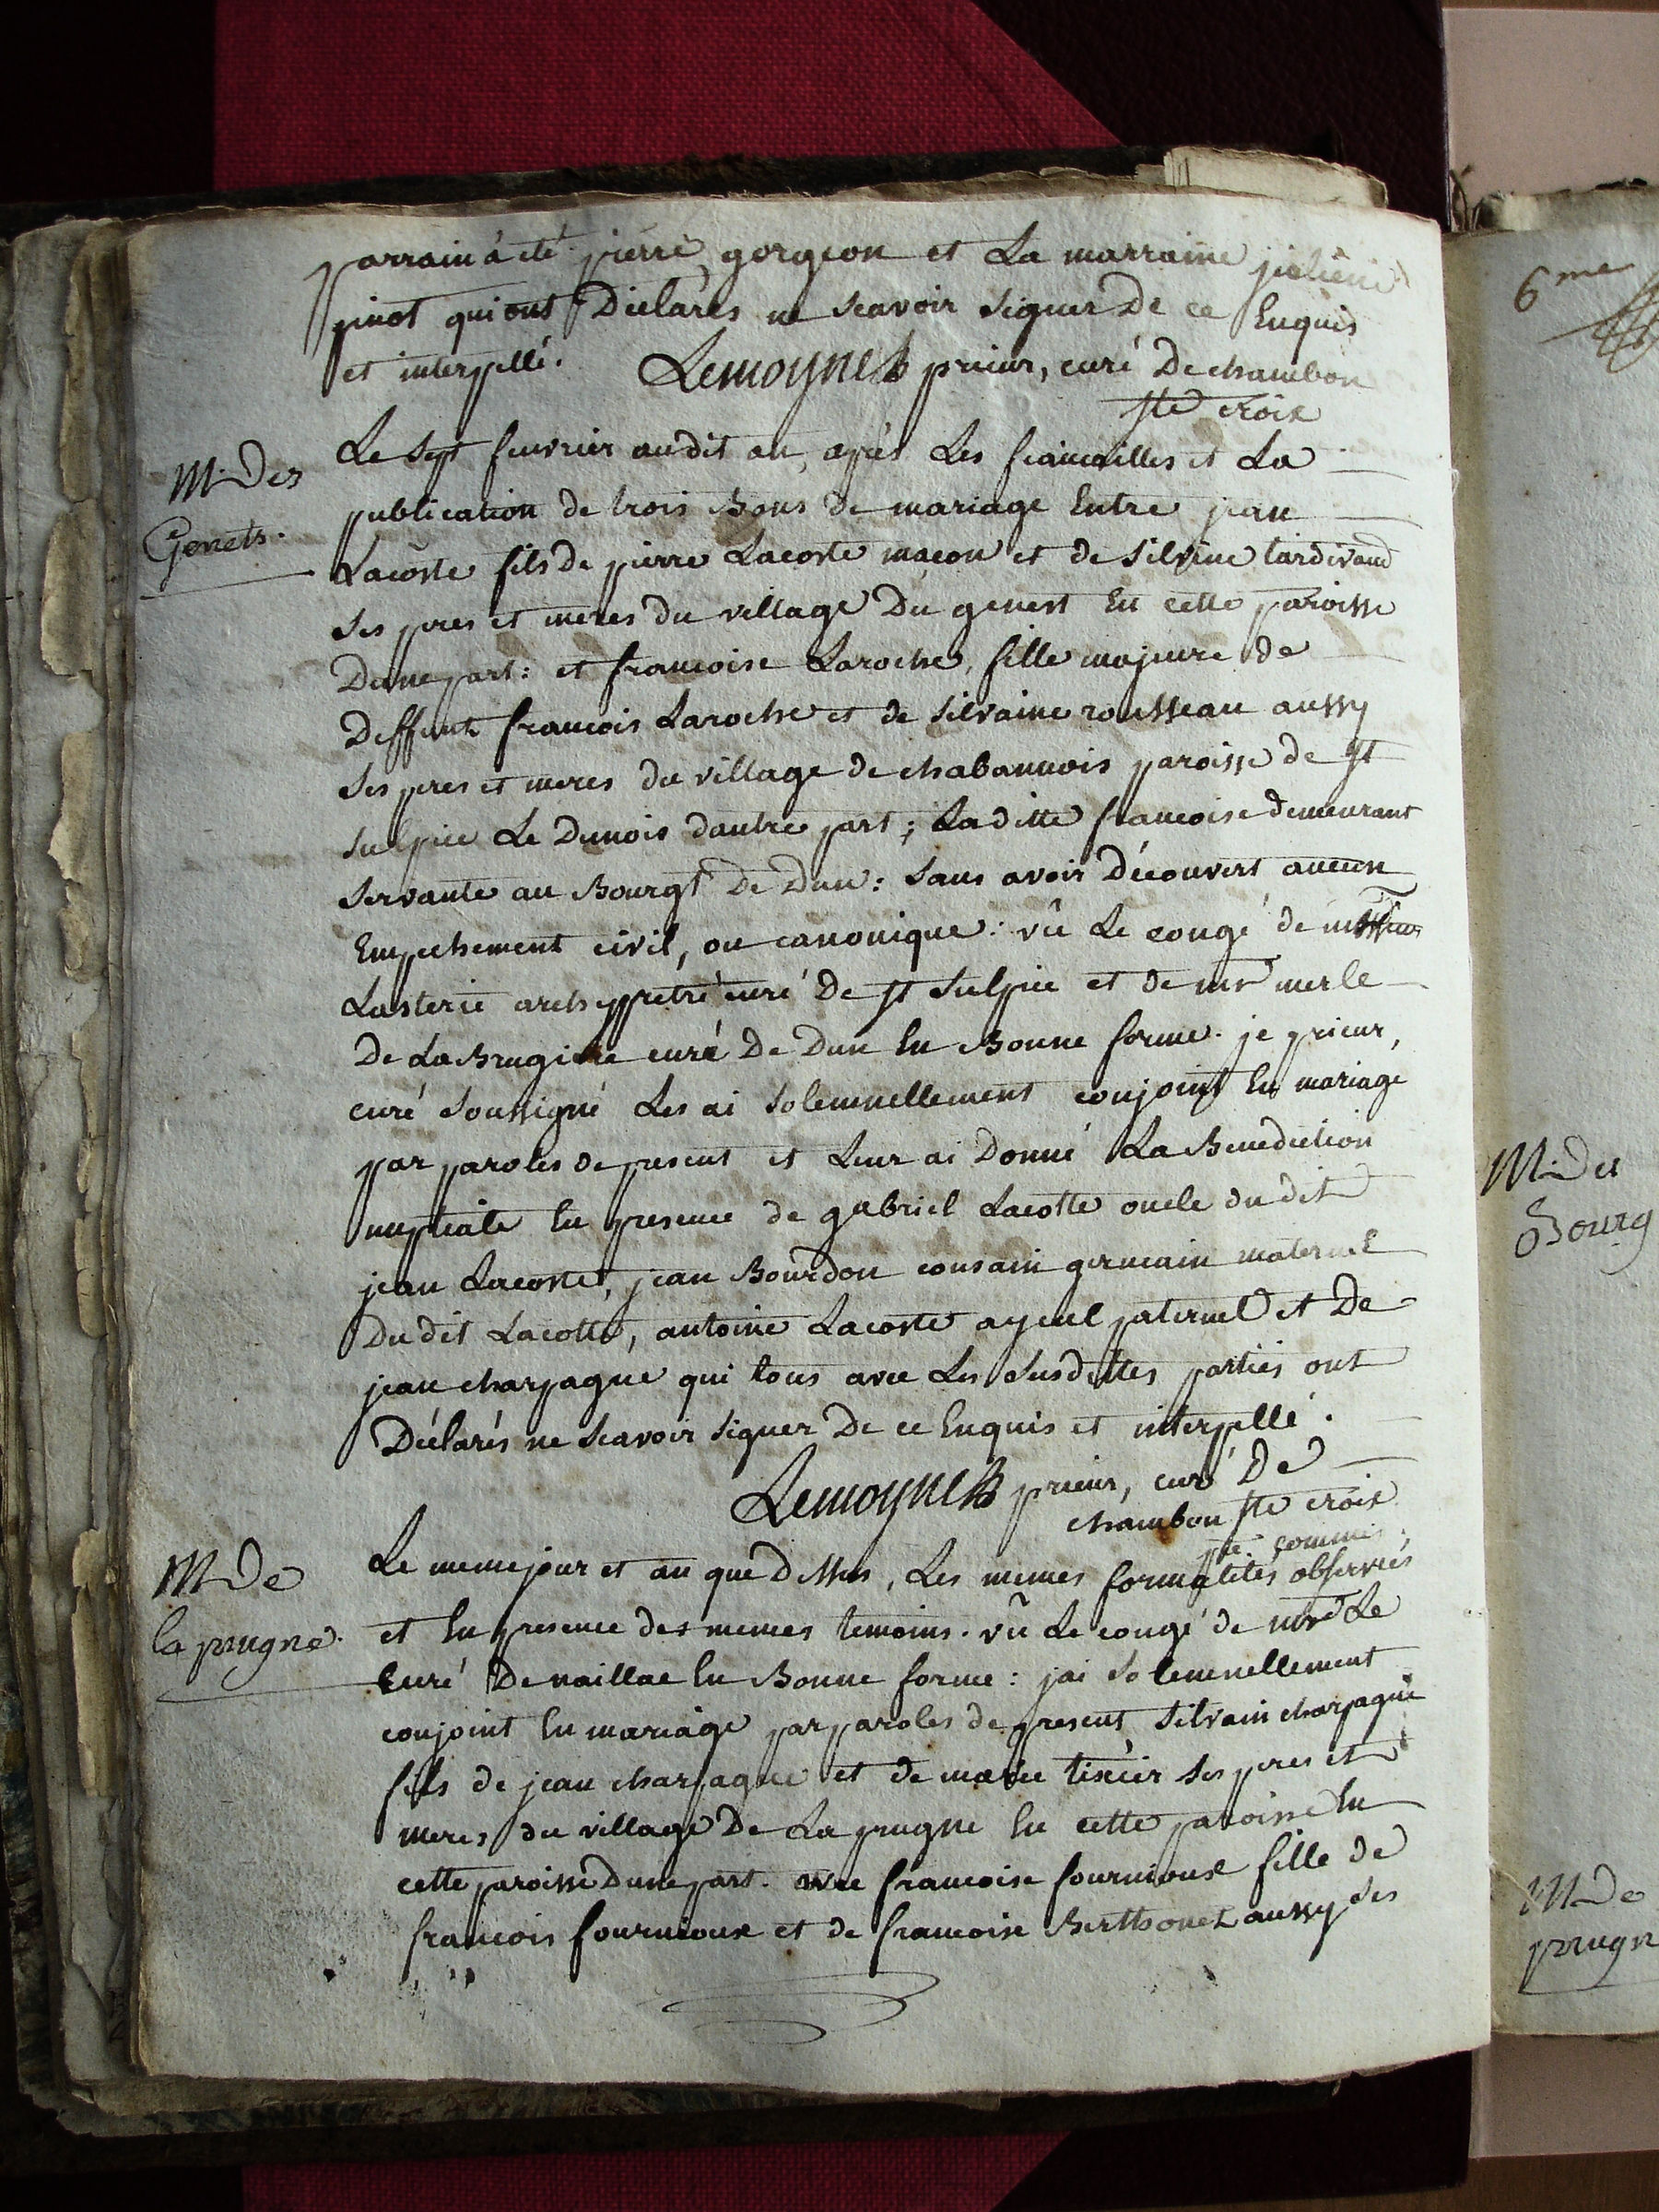 parrain á eté pierre gorgeon et La marraine
pinot qui ont Déclarés ne Scavoir Signer De ce Enquis
et interpellé. Lemoyne prieur, curé De chambon
ste croix
M. Des
Genets.
Le Sept fevrier audit an, après Les fiancailles et La
publication de trois Bans de mariage Entre jean
Lacoste fils de pierre Lacoste macon et de Silvine tardivaud
Ses peres et meres du village Du genest En cette paroisse
Dune part: et francoise Laroche, fille majeure de
Deffunt francois Laroche et de Silvaine rousseau aussy
Ses peres et meres du village de chabannois paroisse de St
Sulpice Le Dunois dautre part; Laditte francoise demeurant
Servante au Bourgt De Dun: Sans avoir Découvert aucun
Empechement civil, ou canonique: vû Le congé de
Lasterie archipretre curé De St Sulpice et de mr merle
De La Brugiere curé De Dun En Bonne forme. je prieur,
curé Soussigné Les ai Solemnellement conjoint En mariage
par paroles de present et Leur ai Donné La Benediction
nuptiale En presence de gabriel Lacotte oncle du dit
jean Lacoste, jean Bourdon cousain germain maternel
Du dit Lacotte, antoine Lacoste ayeul paternel et De
jean charpagne qui tous avec Les Susdittes parties ont
Déclarés ne Scavoir Signer De ce Enquis et interpellé.
Lemoyne prieur, curé De
chambon ste croix
M. De
la prugne.
Le meme jour et an que Dessus, Les memes formalités observés
et En presence des memes temoins. vû Le congé de mr Le
Curé De naillac En Bonne forme: jai Solemnellement
conjoint En mariage par paroles de present Silvain charpagne
fils de jean charpagne et de marie tixier Ses peres et
meres du village De La prugne En cette paroisse En
cette paroisse Dune part. avec francoise fournioux fille de
francois fournioux et de francoise Berthonet aussy Ses
6me
M. Du
Bourg
M. De
prugn